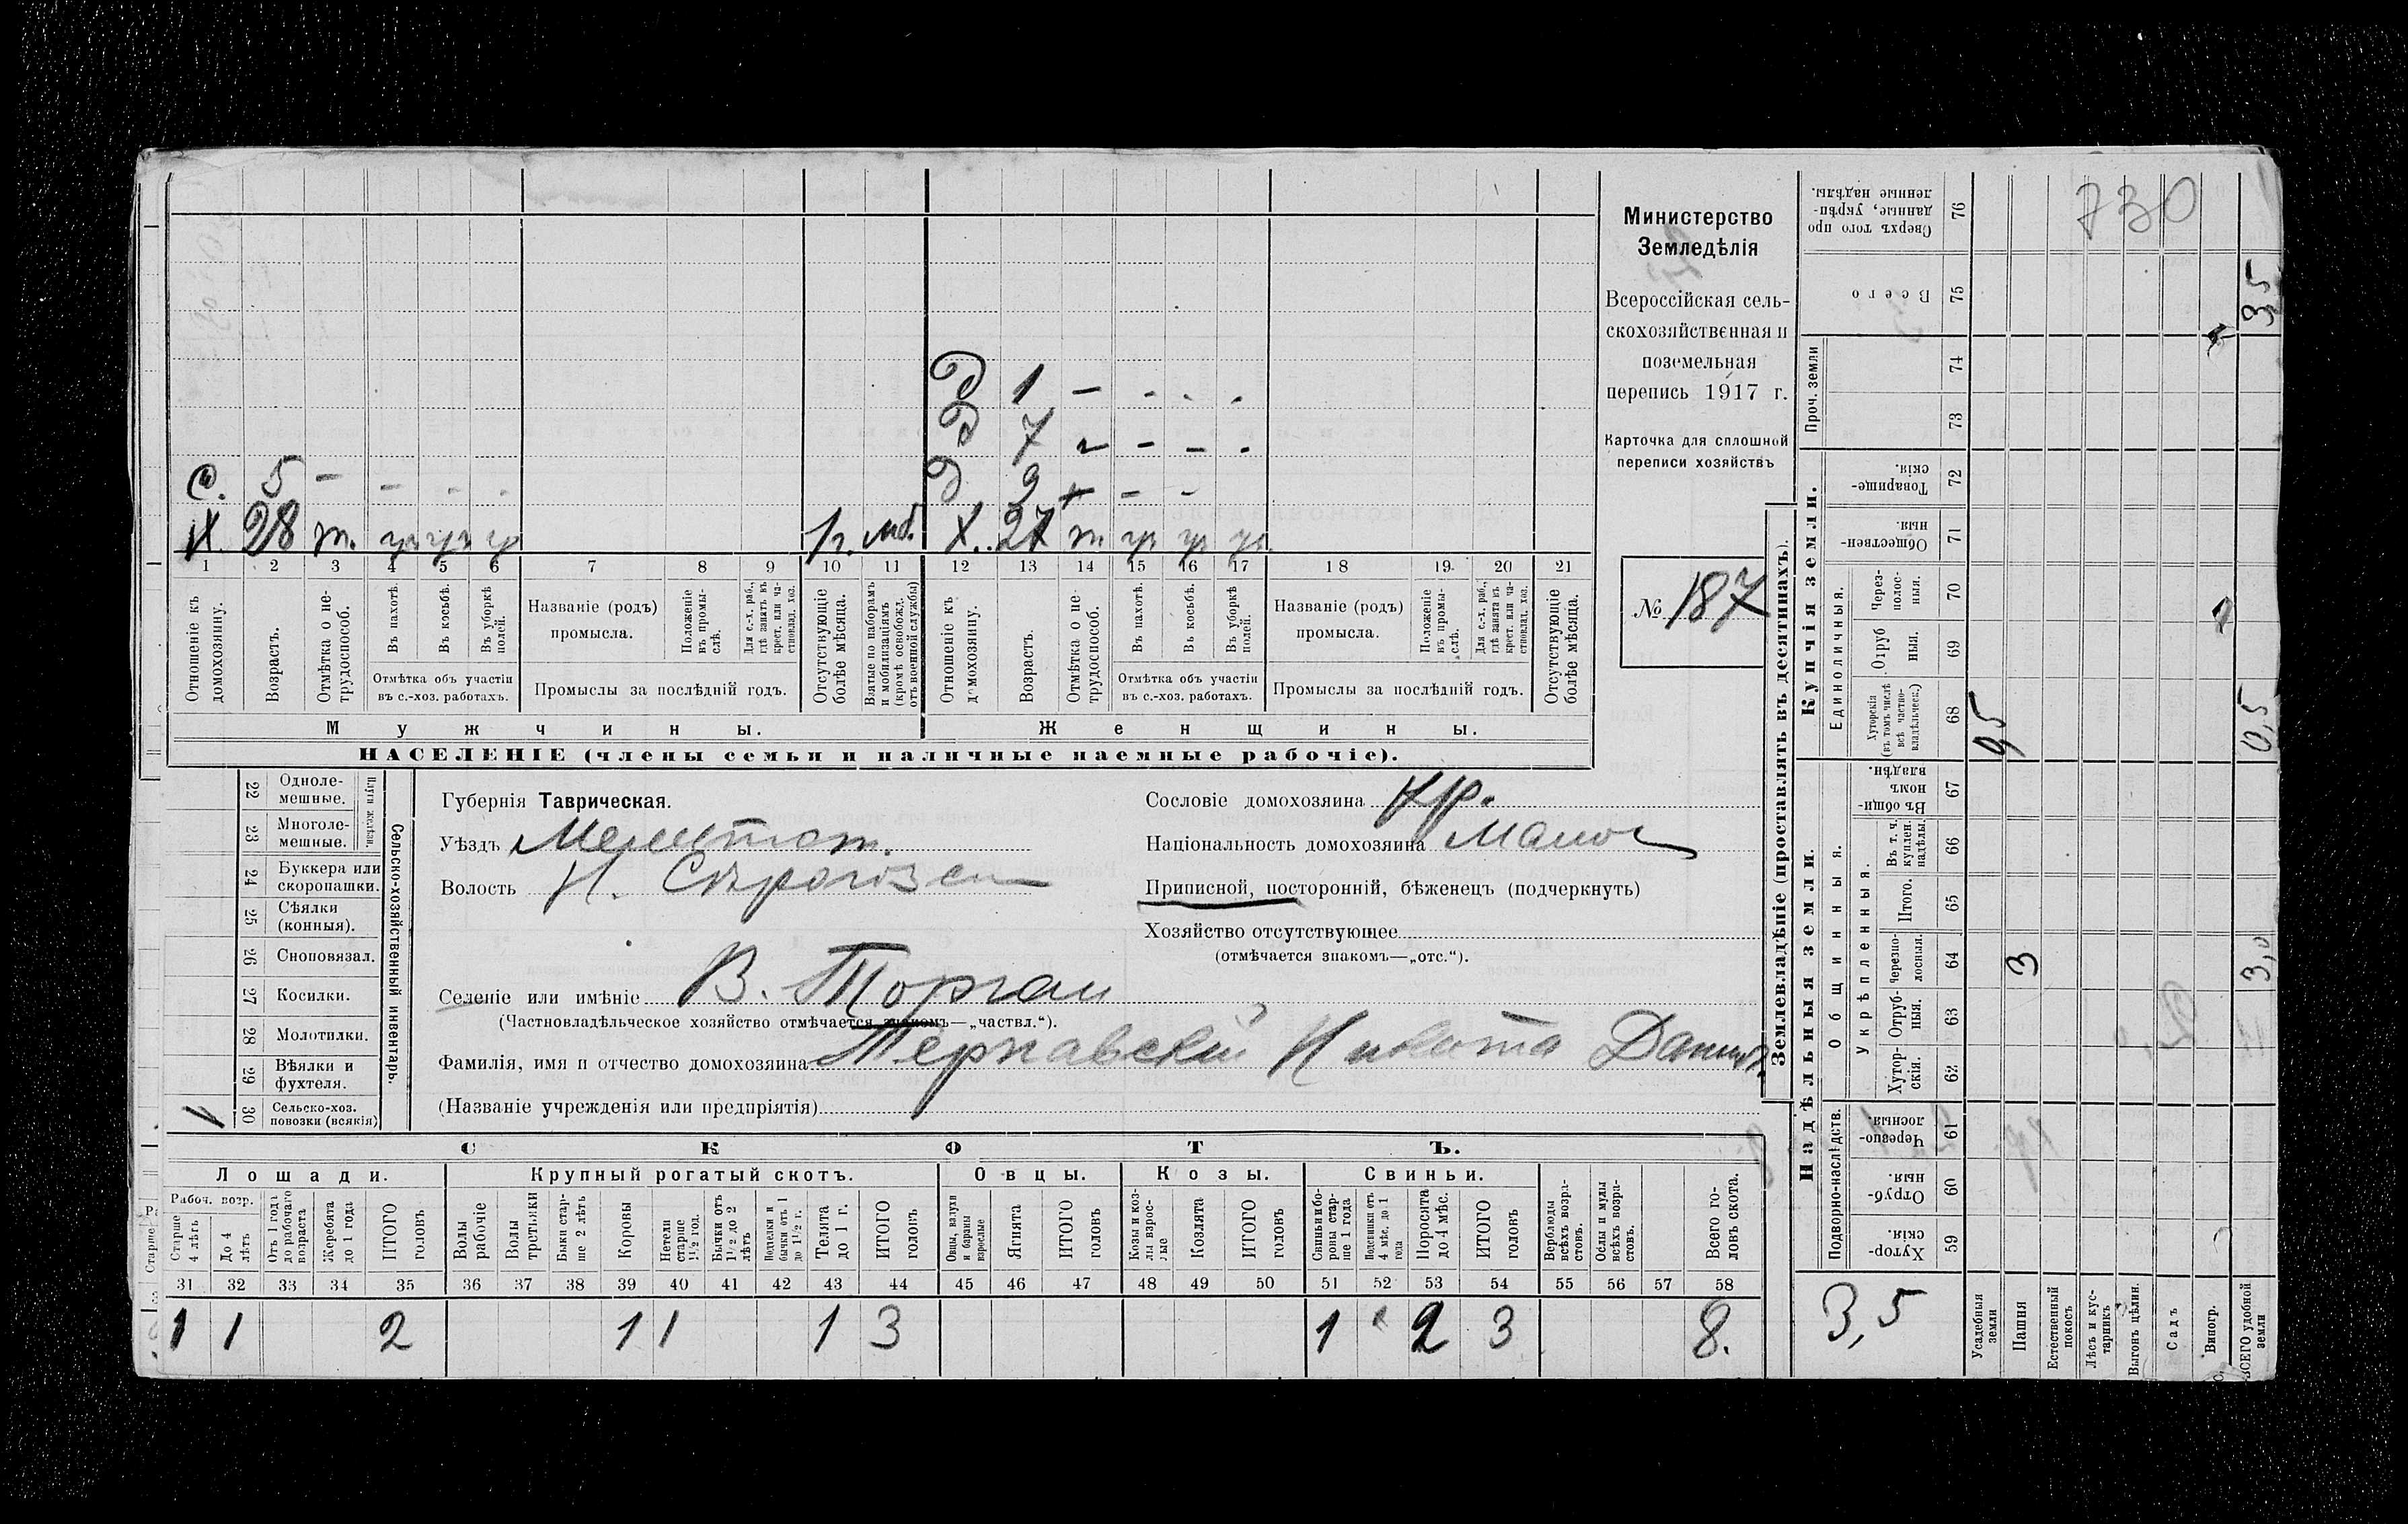 730
Министерство
Земледѣлія
Всероссійская сель-
скохозяйственная и
поземельная
перепись 1917 г.
Карточка для сплошной
переписи хозяйствъ
№ 187
Д 1 - - - -
Д 7 - - - -
с. 5 - - - -
Д 9 - -
Х 28 т.
1 г. моб.
Х. 27 т.
1 2 3 4 5 6 7 8 9 10 11 12 13 14 15 16 17 18 19 20 21
Отношеніе къ домохозяину.
Возрастъ.
Отмѣтка о не-трудоспособ.
Въ пахотѣ.
Въ косьбѣ.
Въ уборкѣ полей.
Отмѣтка объ участіи въ с.-хоз. работахъ.
Названіе (родъ) промысла.
Положеніе въ промы-слѣ.
Для с.-х. раб., гдѣ занятъ въ крест. или ча-стновлад. хоз.
Промыслы за послѣдній годъ.
Отсутствующіе болѣе мѣсяца.
Взятые по наборамъ и мобилизаціямъ (кромѣ освобожд. отъ военной службы)
Отношеніе къ домохозяину.
Возрастъ.
Отмѣтка о не-трудоспособ.
Въ пахотѣ.
Въ косьбѣ.
Въ уборкѣ полей.
Отмѣтка объ участіи въ с.-хоз. работахъ.
Названіе (родъ) промысла.
Положеніе въ промы-слѣ.
Для с.-х. раб., гдѣ занята въ крест. или ча-стновлад. хоз.
Промыслы за послѣдній годъ.
Отсутствующіе болѣе мѣсяца.
Мужчины.
Женщины.
НАСЕЛЕНІЕ (члены семьи и наличные наемные рабочіе).
22 Одноле-мешные.
23 Многоле-мешные.
Плуги желѣзн.
24 Буккера или скоропашки.
25 Сѣялки (конныя).
26 Сноповязал.
27 Косилки.
28 Молотилки.
29 Вѣялки и фухтеля.
30 Сельско-хоз. повозки (всякія) 1
Сельско-хозяйственный инвентарь.
Губернія Таврическая.
Уѣздъ Мелитоп.
Волость Н. Сѣрогозск
Селеніе или имѣніе В. Торгаи
(Частновладѣльческое хозяйство отмѣчается знакомъ—„частвл.“).
Фамилія, имя и отчество домохозяина Терпавскій Никита Данил.
(Названіе учрежденія или предпріятія)
Сословіе домохозяина кр.
Національность домохозяина Малор
Приписной, посторонній, бѣженецъ (подчеркнуть)
Хозяйство отсутствующее
(отмѣчается знакомъ—„отс.“).
СКОТЪ.
Лошади.
Крупный рогатый скотъ.
Овцы.
Козы.
Свиньи.
Рабоч. возр.
Старше 4 лѣтъ
До 4 лѣтъ
Отъ 1 года до рабочаго возраста
Жеребята до 1 года
ИТОГО головъ
Волы рабочіе
Волы третьяки
Быки стар-ше 2 лѣтъ
Коровы
Нетели старше 1½ год.
Бычки отъ 1½ до 2 лѣтъ
Подтелки и бычки отъ 1 до 1½ г.
Телята до 1 г.
ИТОГО головъ
Овцы, валухи и бараны взрослые
Ягнята
ИТОГО головъ
Козы и коз-лы взрос-лые
Козлята
ИТОГО головъ
Свиньи и бо-ровы стар-ше 1 года
Подсвинки отъ 4 мѣс. до 1 года
Поросята до 4 мѣс.
ИТОГО головъ
Верблюды всѣхъ возра-стовъ.
Ослы и мулы всѣхъ возра-стовъ.
Всего го-ловъ скота.
31 32 33 34 35 36 37 38 39 40 41 42 43 44 45 46 47 48 49 50 51 52 53 54 55 56 57 58
1 1 2 1 1 1 3 1 2 3 8.
Землевладѣніе (проставлять въ десятинахъ).
Надѣльныя земли.
Купчія земли.
Проч. земли
Подворно-наслѣдств.
Общинныя.
Укрѣпленныя.
Единоличныя.
59 Хутор-скія.
60 Отруб-ныя.
61 Черезпо-лосныя.
62 Хутор-скія.
63 Отруб-ныя.
64 Черезпо-лосныя.
65 Итого.
66 Въ т. ч. куплен. надѣлы.
67 Въ общи-номъ владѣн.
68 Хуторскія (въ томъ числѣ всѣ частно-владѣльческ.)
69 Отруб ныя.
70 Через-полос-ныя.
71 Обществен-ныя.
72 Товарище-скія.
73
74
75 Всего
76 Сверхъ того про данные, укрѣп-ленные надѣлы.
3,5
Усадебныя земли
Пашня 3
Естественный покосъ
Лѣсъ и кус-тарникъ
Выгонъ цѣлин.
Садъ
Виногр.
ВСЕГО удобной земли 3,0 0,5 3,5